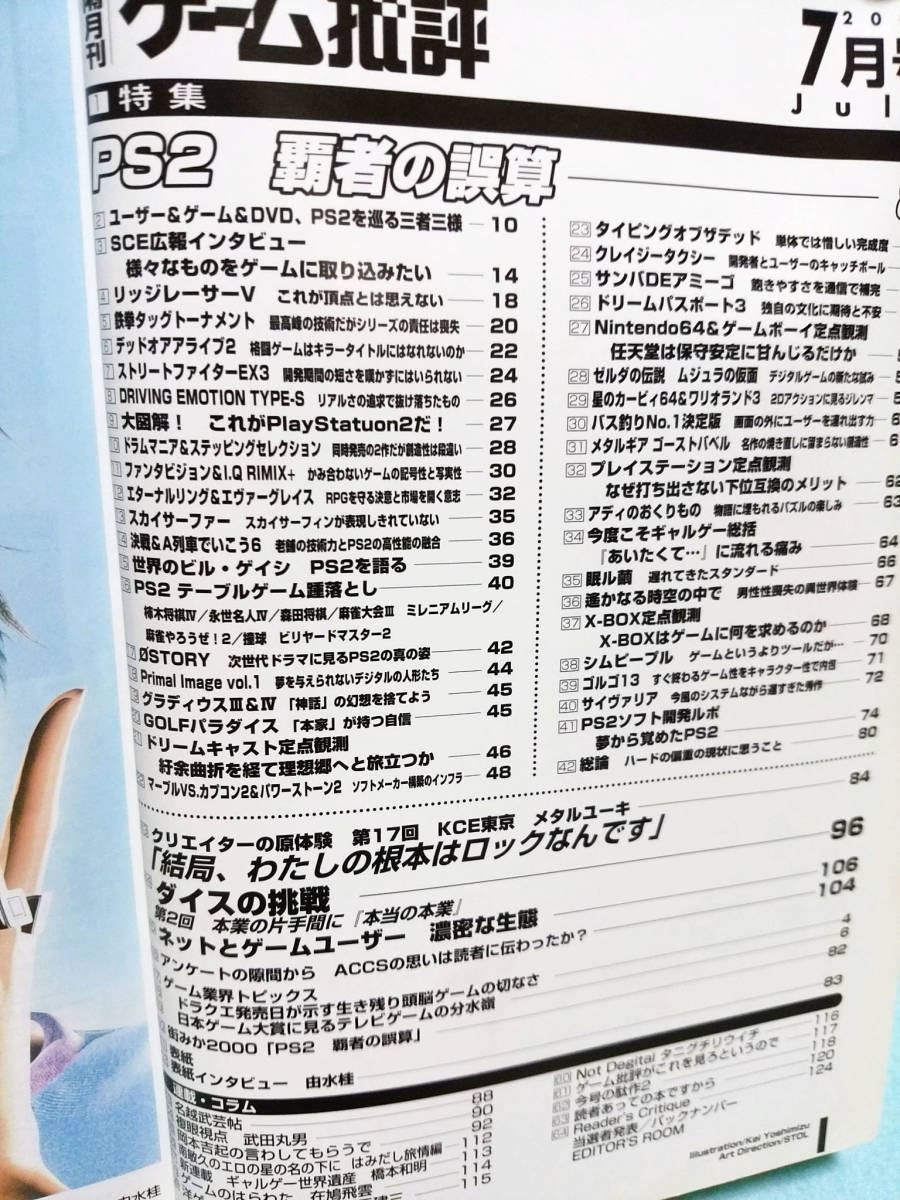 隔月刊
ゲーム批評
7月号
Jul
1 特集
PS2 覇者の誤算
2 ユーザー&ゲーム&DVD、PS2を巡る三者三様 10
3 SCE広報インタビュー
様々なものをゲームに取り込みたい 14
4 リッジレーサーV これが頂点とは思えない 18
5 鉄拳タッグトーナメント 最高峰の技術だがシリーズの責任は喪失 20
6 デッドオアアライブ2 格闘ゲームはキラータイトルにはなれないのか 22
7 ストリートファイターEX3 開発期間の短さを嘆かずにはいられない 24
8 DRIVING EMOTION TYPE-S リアルさの追求で抜け落ちたもの 26
9 大図解! これがPlayStatuon2だ! 27
10 ドラムマニア&ステッピングセレクション 同時発売の2作だが創造性は段違い 28
11 ファンタビジョン&I.Q RIMIX+ かみ合わないゲームの記号性と写実性 30
12 エターナルリング&エヴァーグレイス RPGを守る決意と市場を開く意志 32
13 スカイサーファー スカイサーフィンが表現しきれていない 35
14 決戦&A列車でいこう6 老舗の技術力とPS2の高性能の融合 36
15 世界のビル・ゲイシ PS2を語る 39
16 PS2 テーブルゲーム踵落とし 40
柿木将棋Ⅳ/永世名人Ⅳ/森田将棋/麻雀大会Ⅲ ミレニアムリーグ/
麻雀やろうぜ!2/撞球 ビリヤードマスター2
17 ØSTORY 次世代ドラマに見るPS2の真の姿 42
18 Primal Image vol.1 夢を与えられないデジタルの人形たち 44
19 グラディウスⅢ&Ⅳ 「神話」の幻想を捨てよう 45
20 GOLFパラダイス 「本家」が持つ自信 45
21 ドリームキャスト定点観測
紆余曲折を経て理想郷へと旅立つか 46
22 マーブルVS.カプコン2&パワーストーン2 ソフトメーカー構築のインフラ 48
23 タイピングオブザデッド 単体では惜しい完成度
24 クレイジータクシー 開発者とユーザーのキャッチボール
25 サンバDEアミーゴ 飽きやすさを通信で補完
26 ドリームパスポート3 独自の文化に期待と不安
27 Nintendo64&ゲームボーイ定点観測
任天堂は保守安定に甘んじるだけか
28 ゼルダの伝説 ムジュラの仮面 デジタルゲームの新たな試み
29 星のカービィ64&ワリオランド3 2Dアクションに見るジレンマ
30 バス釣りNo.1決定版 画面の外にユーザーを連れ出す力
31 メタルギア ゴーストバベル 名作の焼き直しに留まらない創造性
32 プレイステーション定点観測
なぜ打ち出さない下位互換のメリット 62
33 アディのおくりもの 物語に埋もれるパズルの楽しみ 63
34 今度こそギャルゲー総括
『あいたくて…』に流れる痛み 64
35 眠ル繭 遅れてきたスタンダード 66
36 遙かなる時空の中で 男性性喪失の異世界体験 67
37 X-BOX定点観測
X-BOXはゲームに何を求めるのか 68
38 シムピープル ゲームというよりツールだが… 70
39 ゴルゴ13 すぐ終わるゲーム性をキャラクター性で内包 71
40 サイヴァリア 今風のシステムながら遅すぎた秀作 72
41 PS2ソフト開発ルポ
夢から覚めたPS2 74
42 総論 ハードの偏重の現状に思うこと 80
クリエイターの原体験 第17回 KCE東京 メタルユーキ 84
「結局、わたしの根本はロックなんです」 96
ダイスの挑戦
第2回 本業の片手間に『本当の本業』 106
ネットとゲームユーザー 濃密な生態 104
アンケートの隙間から ACCSの思いは読者に伝わったか? 4
ゲーム業界トピックス 6
ドラクエ発売日が示す生き残り頭脳ゲームの切なさ
日本ゲーム大賞に見るテレビゲームの分水嶺 82
街みか2000「PS2 覇者の誤算」 83
表紙
表紙インタビュー 由水桂
連載・コラム
名越武芸帖 88
複眼視点 武田丸男 90
岡本吉起の言わしてもらうで 92
南敏久のエロの星の名の下に はみだし旅情編 112
新連載 ギャルゲー世界遺産 橋本和明 113
ゲームのはらわた 在鳩飛雲 114
115
60 Not Dagital タニグチリウイチ 116
61 ゲーム批評がこれを見ろというので 117
62 今号の駄作2 118
63 読者あっての本ですから 120
64 Reader's Critique 124
当選者発表/バックナンバー
EDITOR'S ROOM
Illustration/Kei Yoshimizu
Art Direction/STOL
由水桂